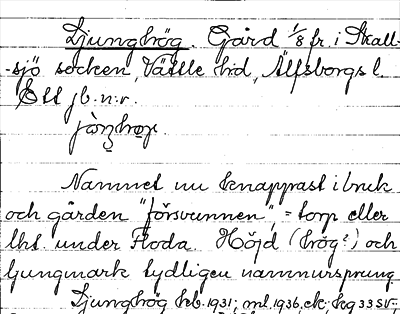 Ljunghög. Gård 1/8 fr. i Skall-
-sjö socken, Vättle hd, Älfsborgs l.
Ett jb.n:r.
Namnet nu knappast i bruk
och gården "försvunnen", = torp eller
lht. under Floda. Höjd (hög?) och
ljungmark tydligen namnursprung
Ljunghög hb. 1931; ml 1936, ek; kg 33 SV;